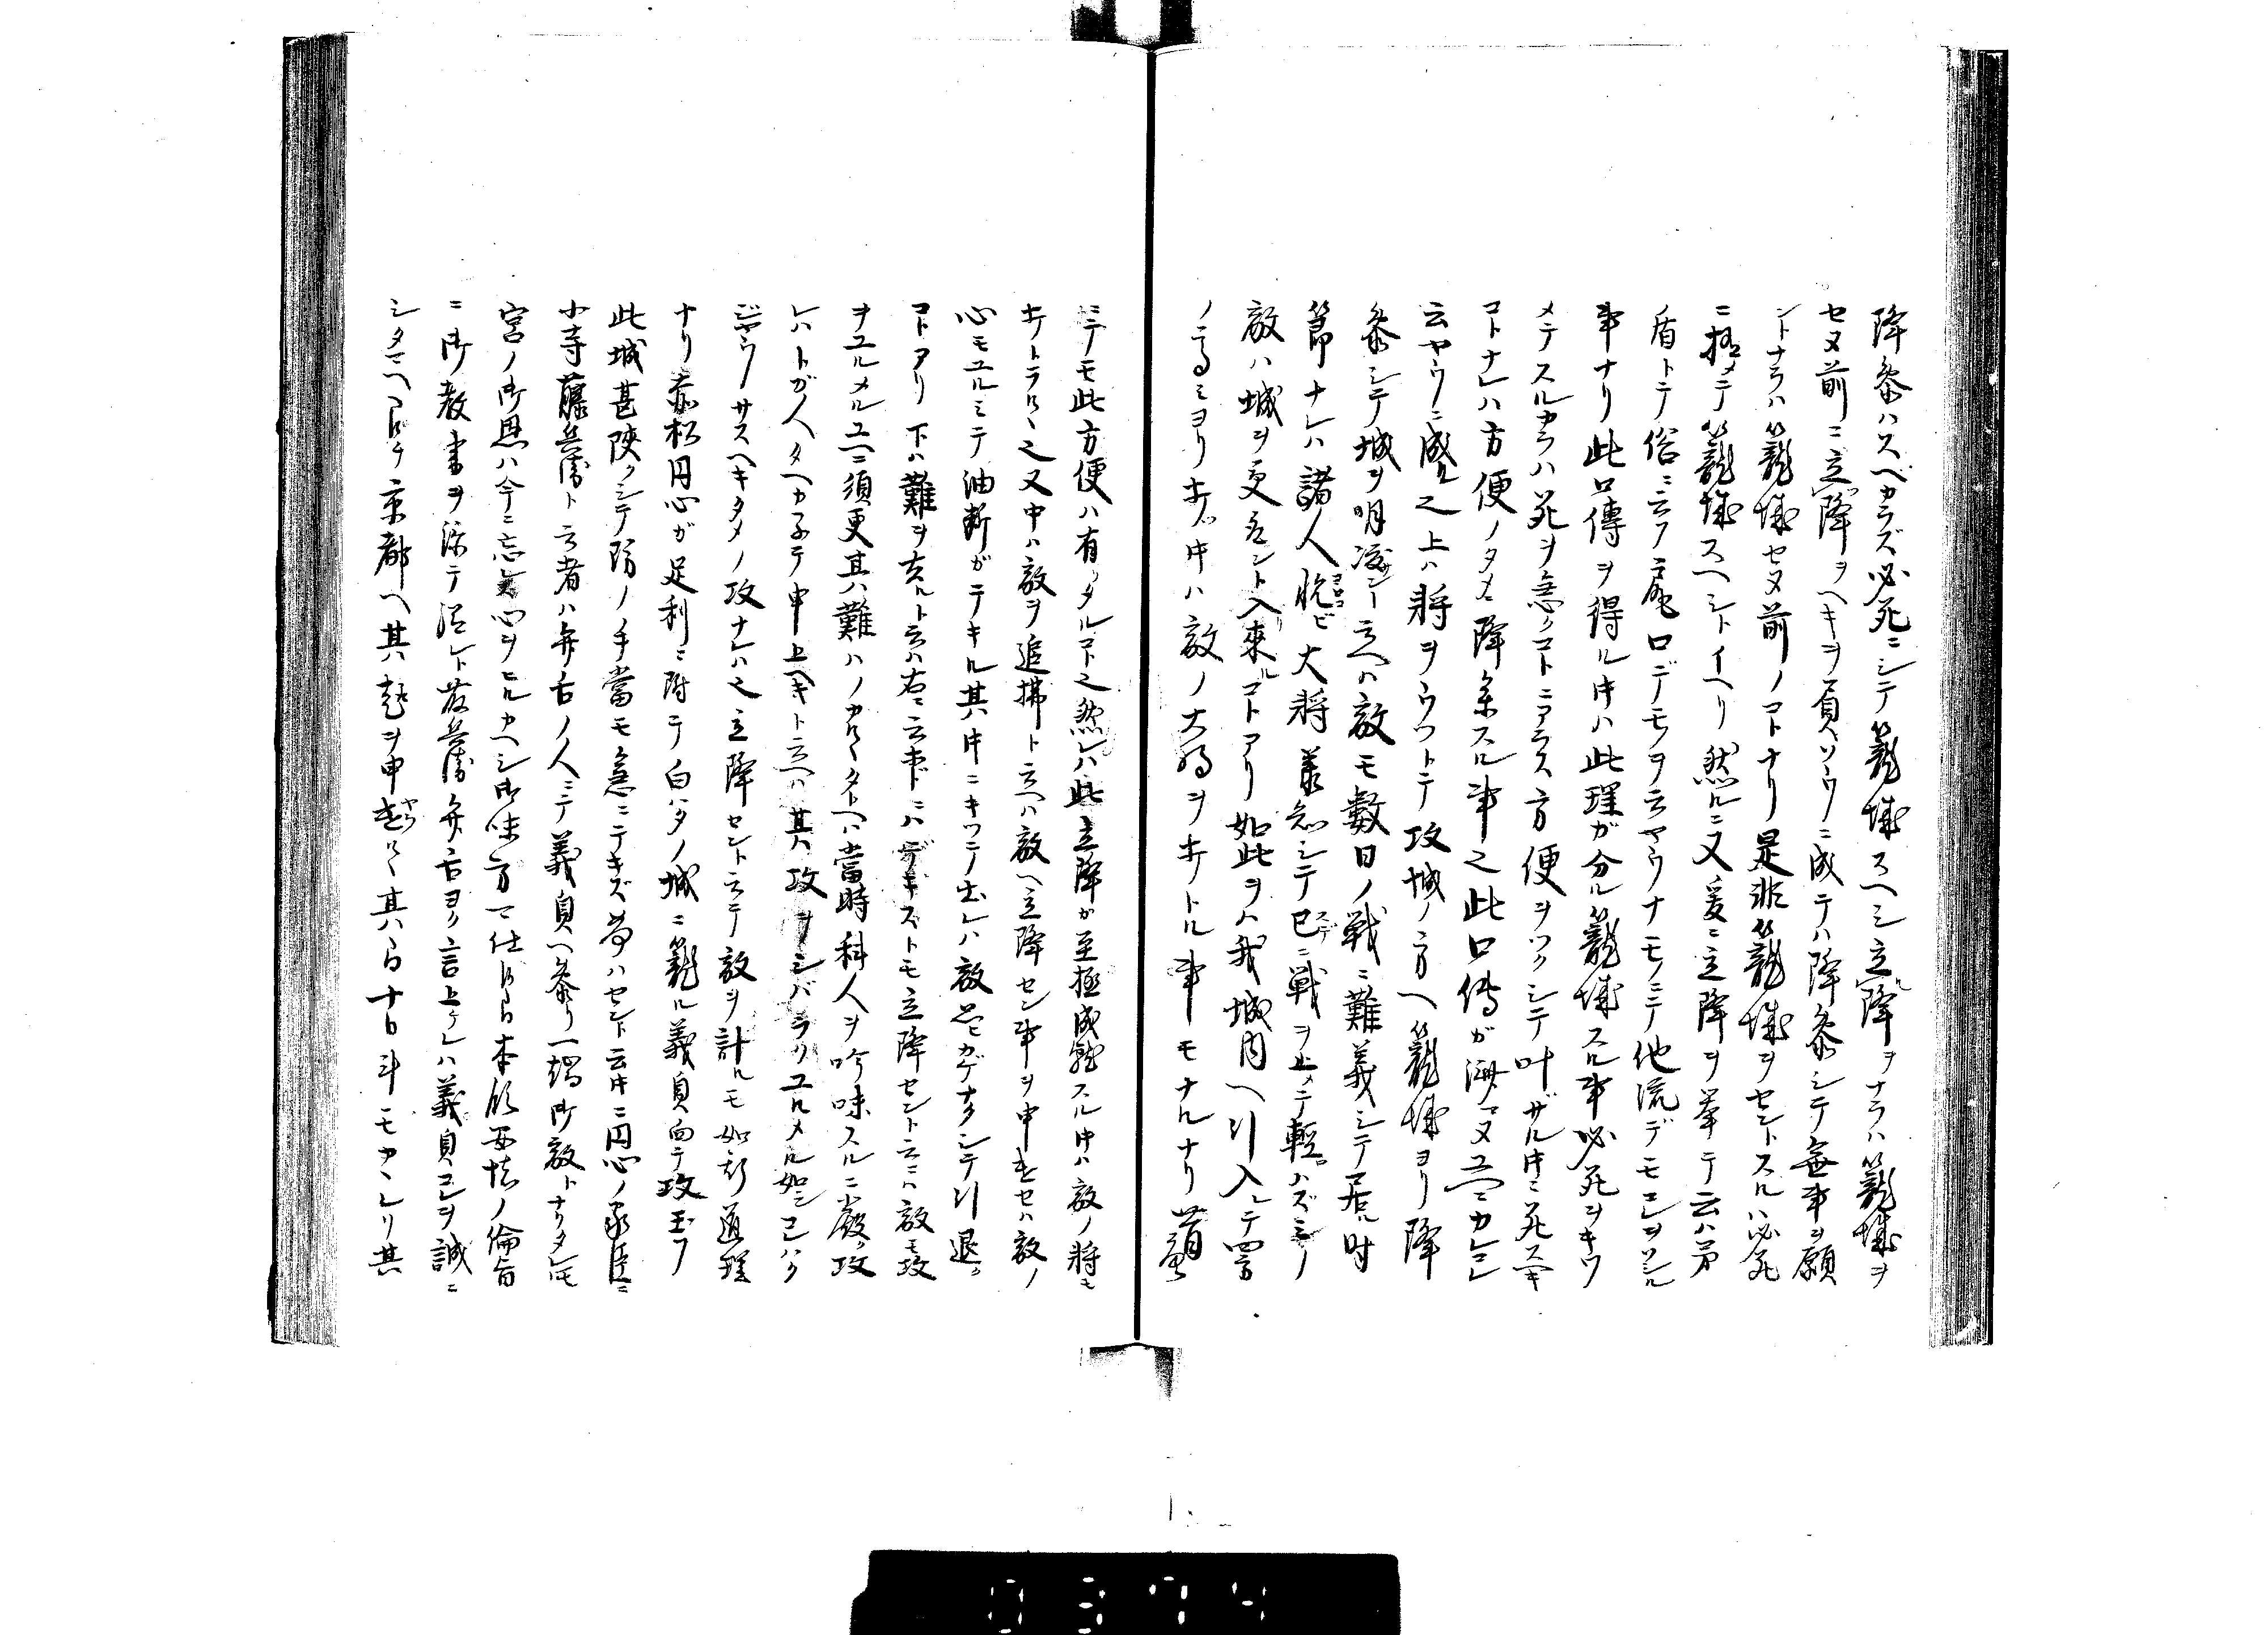 降参ハスベカラズ必死ニシテ籠城スヘシ立降ヲナラハ籠城ヲ
セヌ前ニ立降ヲヘキヲ負ソウニ成テハ降参シテ無事ヲ願
ントナラハ籠城セヌ前ノコトナリ是非籠城ヲセントスルハ必死
ニ極メテ籠城スヘシトイヘリ然ルニ又爰ニ立降ヲ挙テ云ハ矛
盾トテ俗ニ云フ尻口デモノヲ云ヤウナモノニテ他流デモコレヲソシル
事ナリ此口傳ヲ得ル時ハ此理ガ分ル籠城スル事必死ヲキワ
メテスルカラハ死ヲ急クコトニアラス方便ヲツクシテ叶ザル時ニ死スヘキ
コトナレハ方便ノタメ降参スル事也此口傳ガ済マヌユヘニカレコレ
云ヤウニ成也上ハ将ヲウツトテ攻城ノ方ヘ籠城ヨリ降
参シテ城ヲ明渡シト云ヘハ敵モ数日ノ戦ニ難義シテ居ル時
節ナレハ諸人悦ビ大将承知シテ已ニ戦ヲ止メテ軽ハズミノ
敵ハ城ヲ受取ント入来ルコトアリ如此ヲハ我城内ヘ引入レテ四方
ノ高ミヨリ打時ハ敵ノ大将ヲ打トル事モナルナリ
ニテモ此方便ハ有タルコト也然レハ此立降が至極成就スル時ハ敵ノ将モ
打トラルヽ也又中ハ敵ヲ追拂ト云ヘハ敵ヘ立降セン事ヲ申遣セハ敵ノ
心モユルミテ油断ガテキル其時ニキツテ出レハ敵思ヒカゲナクシテ引退ク
コトアリ下ハ難ヲ去ルト云ハ右ニ云事ドニハデキズトモ立降セント云ニハ敵モ攻
ヲユルメルユヘニ須更其難ハノカルヽタトヘハ當時科人ヲ吟味スルニ厳ク攻
レハトガ人タヘカ子テ申上ヘキト云ヘハ其攻ヲシバラクユルメル如シコレハク
ジヤウサスヘキタメノ攻ナレハ也立降セント云テ敵ヲ計ルモ如斯道理
ナリ赤松円心が足利ニ附テ白ハタノ城ニ籠ル義貞向テ攻玉フ
此城甚陜クシテ防ノ手當モ急ニテキズ為ハセント云時ニ円心ノ家臣ニ
小寺藤兵衛ト云者ハ弁舌ノ人ニテ義貞ヘ参リ一端御敵トナリタレ𪜈
宮ノ御恩ハ今ニ忘レズ心ヲヒルカヘシ御味方ヘ仕ル間本領安堵ノ倫旨
ニ御教書ヲ添テ給レト藤兵衛弁舌ヨク言上ケレハ義貞コレヲ誠ニ
シタマヘ即チ京都ヘ其趣ヲ申遣ハサル其間十日計モカヽレリ其